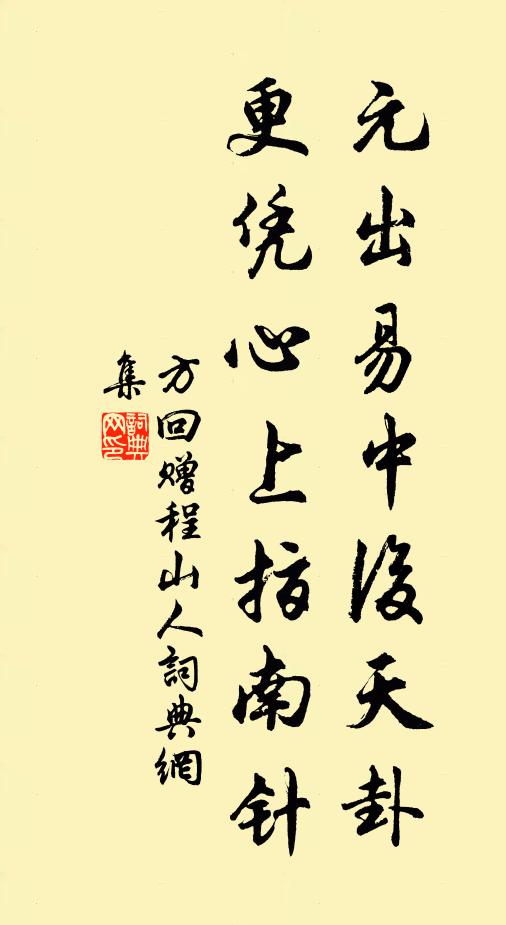 元出易中後天卦
更凭心上指南针
方回赠程山人詞典網
集
詞典網印